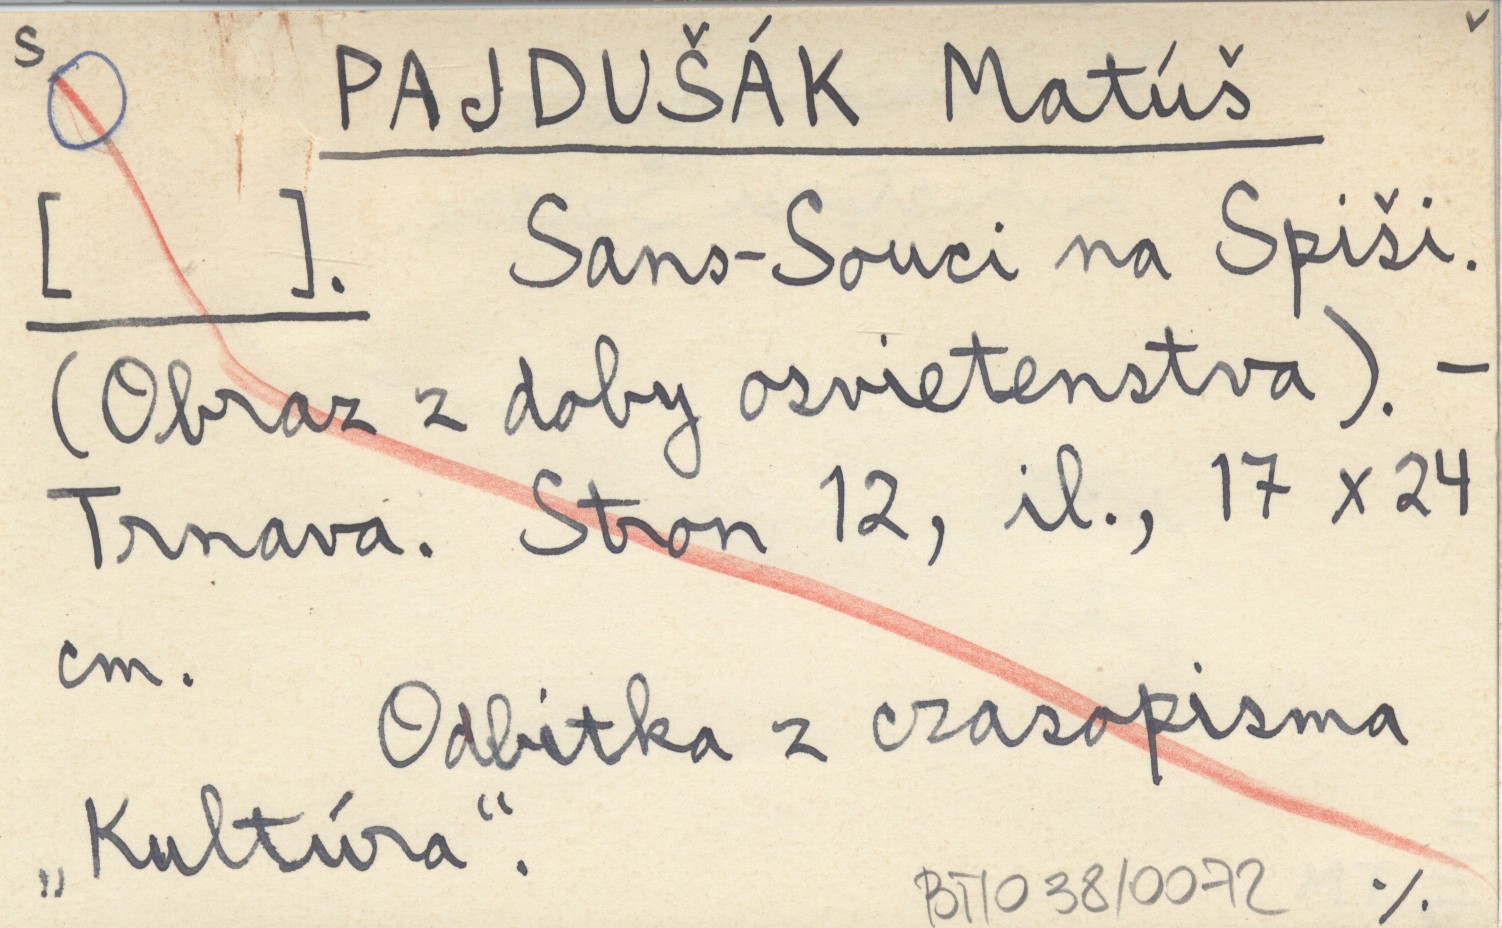 S
PAJDUŠÁK Matúš
[ ]. Sans-Souci na Spiši.
(Obraz z doby osvietenstva). –
Trnava. Stron 12, il., 17 x 24
cm.
Odbitka z czasopisma
„Kultúra“.
BTIO 38/0072 ./.